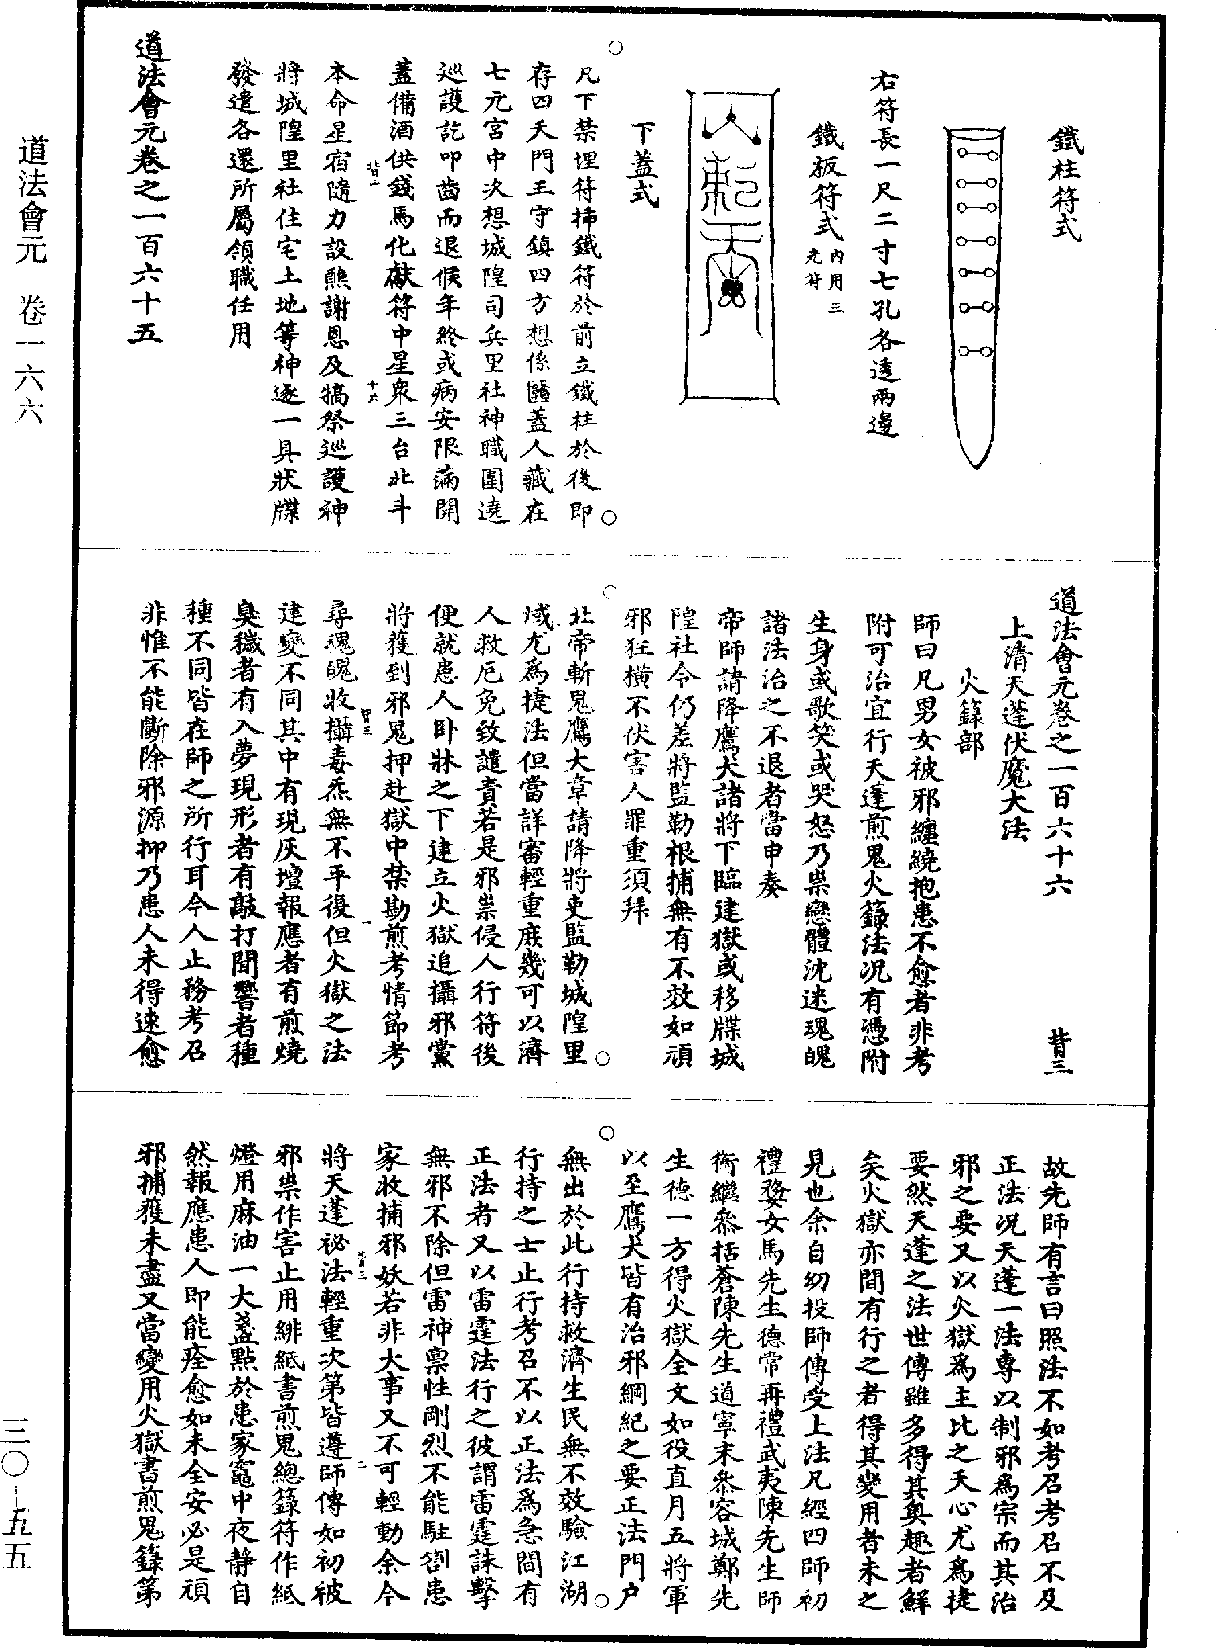 道法會元　卷一六六
三〇—五五
鐵柱符式
右符長一尺二寸七孔各透兩邊
鐵板符式 內用三光符
下蓋式
凡下禁埋符揷鐵符於前立鐵柱於後即
存四天門王守鎮四方想係醮蓋人藏在
七元宮中次想城隍司兵里社神職圍遶
巡護訖叩齒而退候年終或病安限滿開
蓋備酒供錢馬化獻符中星衆三台北斗
本命星宿隨力設醮謝恩及犒祭巡護神
將城隍里社住宅土地等神逐一具狀牒
發遣各還所屬領職任用
道法會元卷之一百六十五
道法會元卷之一百六十六　背三
上清天蓬伏魔大法
火籙部
師曰凡男女被邪纏繞抱患不愈者非考
附可治宜行天蓬煎鬼火籙法况有憑附
生身或歌笑或哭怒乃祟戀體沈迷魂魄
諸法治之不退者當申奏
帝師請降鷹犬諸將下臨建獄或移牒城
隍社令仍差將監勒根捕無有不效如頑
邪狂橫不伏害人罪重須拜
北帝斬鬼鷹犬章請降將吏監勒城隍里
域尤爲捷法但當詳審輕重庶幾可以濟
人救厄免致譴責若是邪祟侵人行符後
便就患人卧牀之下建立火獄追攝邪黨
將獲到邪鬼押赴獄中禁勘煎考情節考
尋魂魄收攝毒炁無不平復但火獄之法
建變不同其中有現灰壇報應者有煎燒
臭穢者有入夢現形者有敲打聞響者種
種不同皆在師之所行耳今人止務考召
非惟不能斷除邪源抑乃患人未得速愈
故先師有言曰照法不如考召考召不及
正法况天蓬一法專以制邪爲宗而其治
邪之要又以火獄爲主比之天心尤爲捷
要然天蓬之法世傳雖多得其奧趣者鮮
矣火獄亦間有行之者得其變用者未之
見也余自幼投師傳受上法凡經四師初
禮婺女馬先生德常再禮武夷陳先生師
衜繼叅括蒼陳先生道寧末叅容城鄭先
生德一方得火獄全文如役直月五將軍
以至鷹犬皆有治邪綱紀之要正法門户
無出於此行持救濟生民無不效驗江湖
行持之士止行考召不以正法爲急間有
正法者又以雷霆法行之彼謂雷霆誅擊
無邪不除但雷神禀性剛烈不能駐劄患
家收捕邪妖若非大事又不可輕動余今
將天蓬祕法輕重次第皆遵師傳如初被
邪祟作害止用緋紙書煎鬼總籙符作紙
燈用麻油一大盞點於患家竈中夜静自
然報應患人即能痊愈如未全安必是頑
邪捕獲未盡又當變用火獄書煎鬼籙第